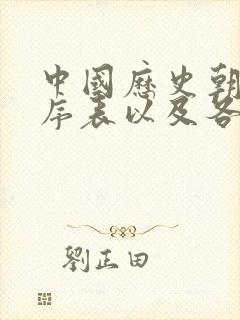 中國歷史朝
序表以及各
劉正田